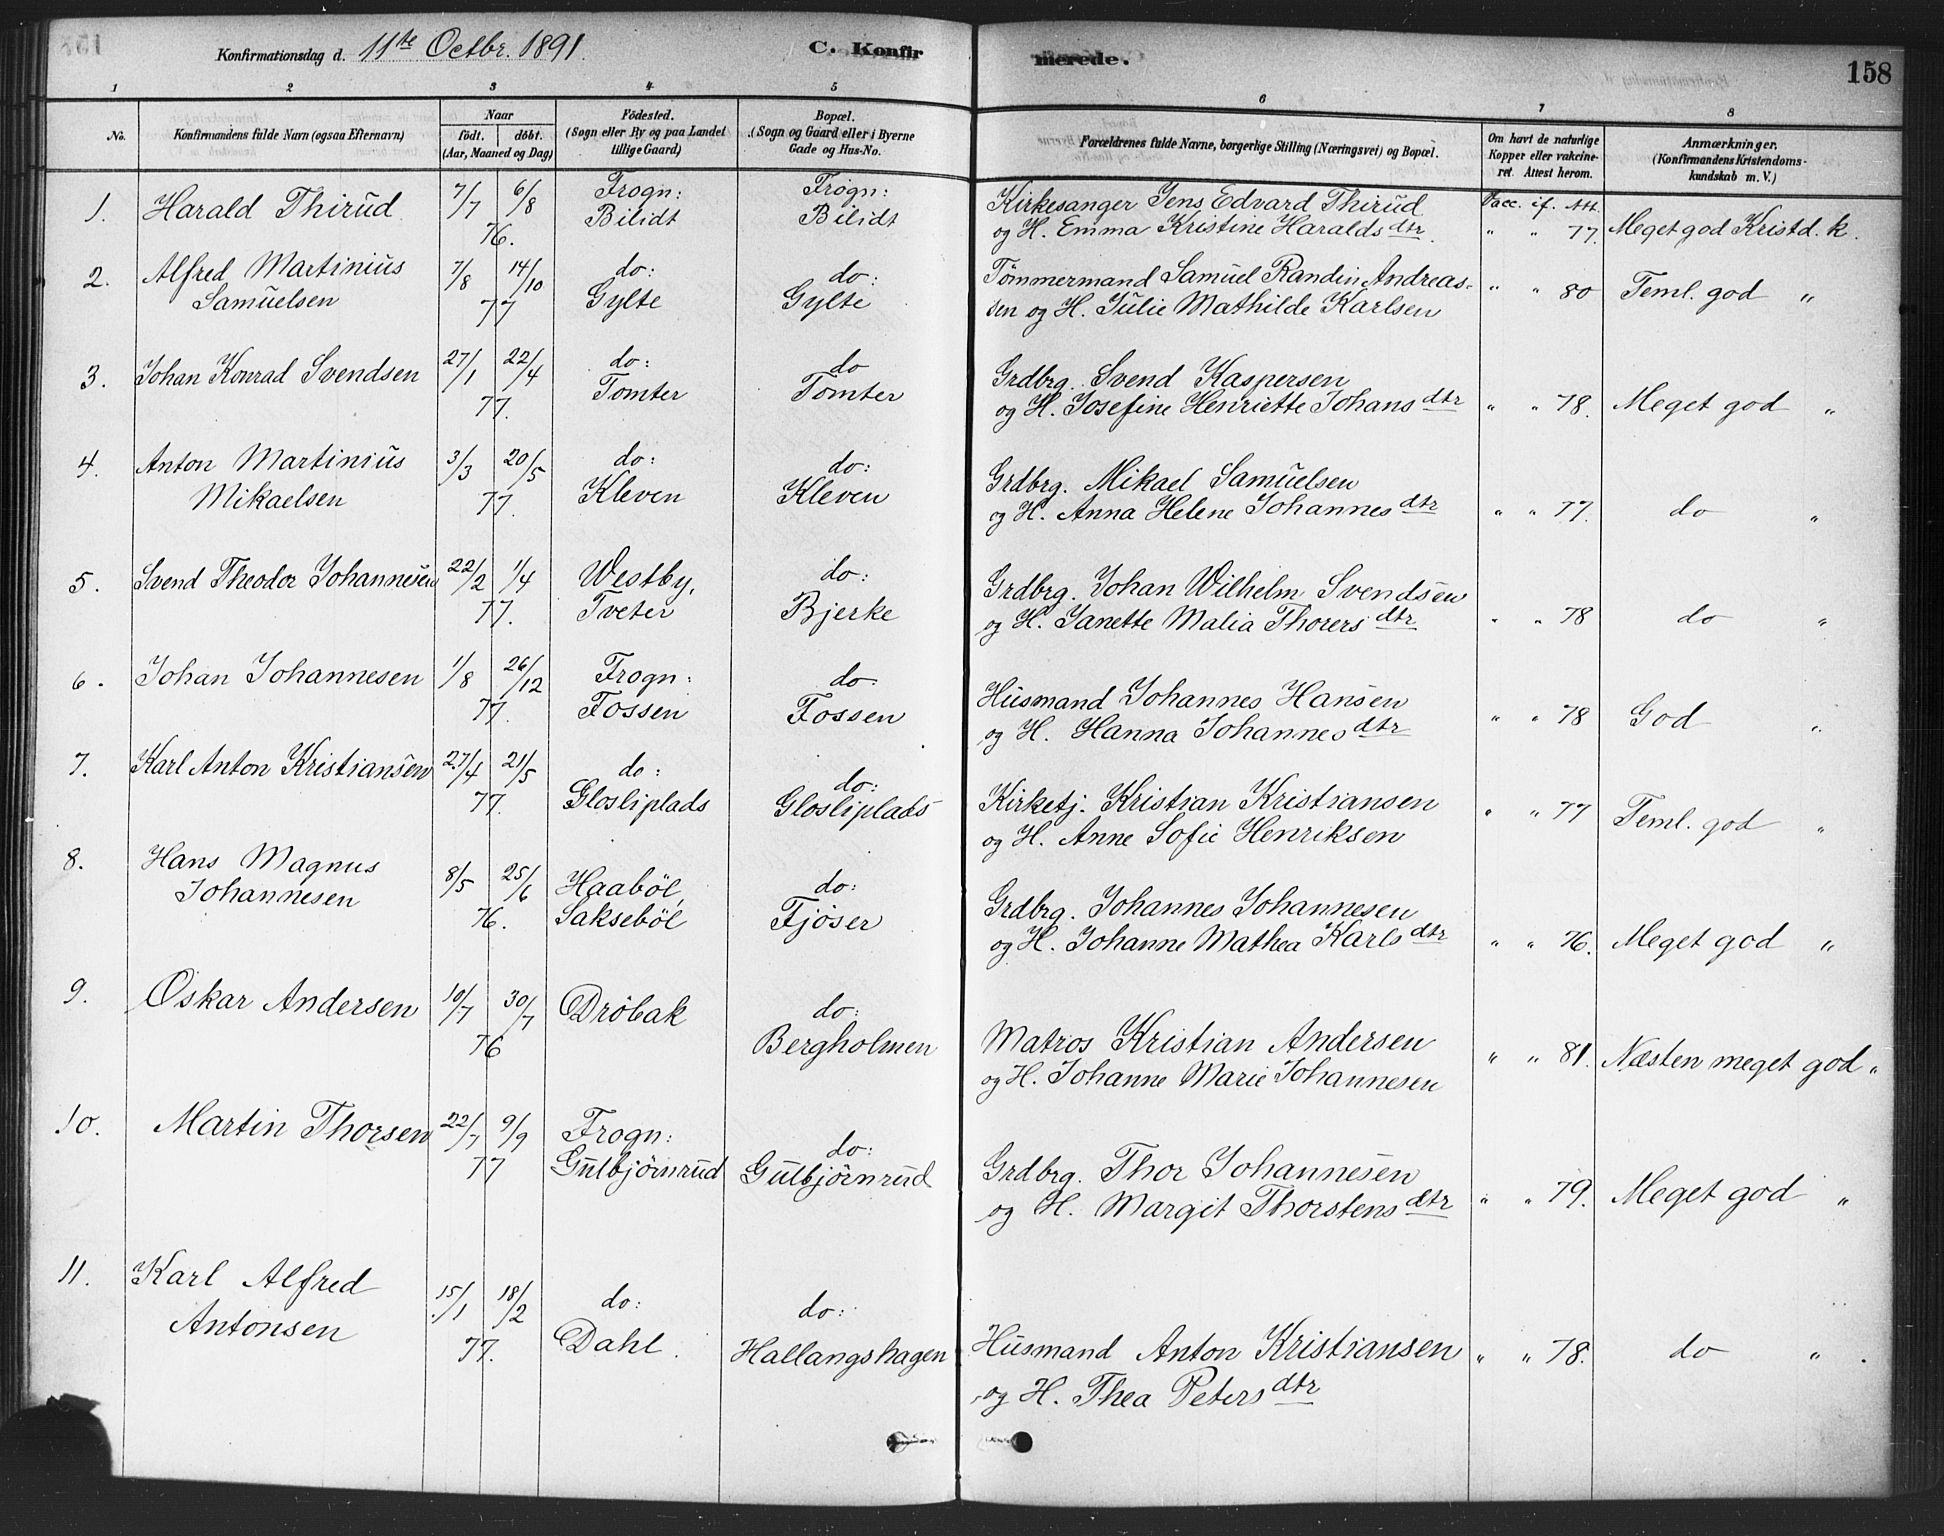 Konfirmationsdag d. 11te Octbr. 1891. C. Konfirmerede. 158
1 2 3 4 5 6 7 8
No. Konfirmandens fulde Navn (ogsaa Efternavn) Naar födt. döbt. (Aar, Maaned og Dag) Födested. (Sogn eller By og paa Landet tillige Gaard) Bopæl. (Sogn og Gaard eller i Byerne Gade og Hus-No. Forældrenes fulde Navne, borgerlige Stilling (Næringsvei) og Bopæl. Om havt de naturlige Kopper eller vakcineret. Attest herom. Anmærkninger. (Konfirmandens Kristendomskundskab m. V.)
1. Harald Thirud 7/7 6/8 76. Frogn: Bilidt Frogn: Bilidt Kirkesanger Jens Edvard Thirud og H. Emma Kristine Haralds dtr. Vacc. if. Att. " " 77. Meget god Kristd. k.
2. Alfred Martinius Samuelsen 7/8 14/10 77 do: Gylte do: Gylte Tømmermand Samuel Randin Andreassen og H. Julie Mathilde Karlsen " " 80 Teml. god "
3. Johan Konrad Svendsen 27/1 22/4 77. do: Tomter do Tomter Grdbrg. Svend Kaspersen og H. Josefine Henriette Johans dtr " " 78. Meget god "
4. Anton Martinius Mikaelsen 3/3 20/5 77. do: Kleven do: Kleven Grdbrg. Mikael Samuelsen og H. Anna Helene Johannes dtr " " 77. do "
5. Svend Theodor Johannesen 22/2 1/4 77. Westby, Tveter do: Bjerke Grdbrg. Johan Wilhelm Svendsen og H. Janette Malia Thorers dtr " " 78 do "
6. Johan Johannesen 1/8 26/12 77. Frogn: Fossen do. Fossen Husmand Johannes Hansen og H. Hanna Johannes dtr " " 78 God "
7. Karl Anton Kristiansen 27/4 21/5 77. do: Glosliplads do: Glosliplads Kirketj. Kristian Kristiansen og H. Anne Sofie Henriksen " " 77 Teml. god "
8. Hans Magnus Johannesen 8/5 25/6 76. Haaböl, Saksebôl do: Fjöser Grdbrg. Johannes Johannesen og H. Johanne Mathea Karls dtr " " 76. Meget god "
9. Oskar Andersen 10/7 30/7 76 Dröbak do: Bergholmen Matros Kristian Andersen og H. Johanne Marie Johannesen " " 81. Næsten meget god "
10. Martin Thorsen 22/7 9/9 77 Frogn: Gulbjörnrud do: Gulbjörnrud Grdbrg. Thor Johannesen og H. Margit Thorstens dtr " " 79. Meget god "
11. Karl Alfred Antonsen 15/1 18/2 77. do: Dahl. do: Hallangshagen Husmand Anton Kristiansen og H. Thea Peters dtr " " 78. do " .